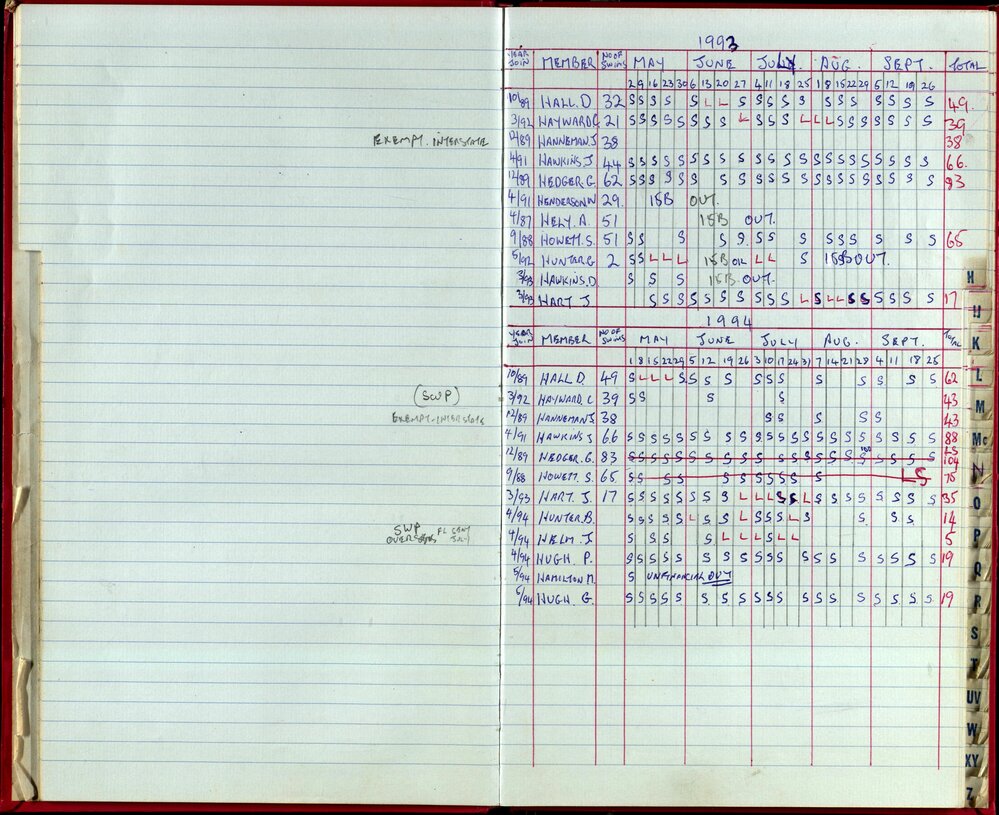 1993
YEAR JOIN MEMBER NO OF SWIMS MAY JUNE JULY. AUG. SEPT. TOTAL
2 9 16 23 30 6 13 20 27 4 11 18 25 1 8 15 22 29 5 12 19 26
10/89 HALL. D 32 S S S S S L L S S S S S S S S S S S S 49
3/92 HAYWARD C 21 S S S S S S S S L S S S L L L S S S S S S S 39
EXEMPT. INTERSTATE 12/89 HANNEMAN. J 38 38
4/91 HAWKINS J. 44 S S S S S S S S S S S S S S S S S S S S S S 66.
12/89 HEDGER. G. 62 S S S S S S S S S S S S S S S S S S S S S 83
4/91 HENDERSON W 29. 15B OUT.
4/87 HELY. A. 51 15B OUT.
9/88 HOWETT. S. 51 S S S S S. S S S S S S S S S 65
5/92 HUNTER G 2 S S L L L 15B OIL L L S 15B OUT.
3/93 HAWKINS. D S S S 15B OUT.
3/93 HART J S S S S S S S S S S L S L L S S S S S S 17
1994
YEAR JOIN MEMBER NO OF SWIMS MAY JUNE JULY AUG. SEPT. TOTAL
1 8 15 22 29 5 12 19 26 3 10 17 24 31 7 14 21 28 4 11 18 25
10/89 HALL D. 49 S L L L S S S S S S S S S S S S 62
(SWP) 3/92 HAYWARD. C 39 S S S S 43
EXEMPT-INTERSTATE 12/89 HANNEMAN J. 38 S S S S S 43
4/91 HAWKINS J 66 S S S S S S S S S S S S S S S S S S S S S S 88
12/89 HEDGER. G. 83 S S S S S S S S S S S S S S S S S S S S S S LS 104
9/88 HOWETT. S. 65 S S S S S S S S S S LS 75
3/93 HART. J. 17 S S S S S S S S L L L S S L S S S S S S S S 35
4/94 HUNTER. B. S S S S L S S L S S S L S S S S 14
SWP OVERSEAS 4/94 HELM. J S S S S L L L S L L 5
4/94 HUGH P. S S S S S S S S S S S S S S S S S S S 19
5/94 HAMILTON M. S UNFINANCIAL OUT
5/94 HUGH G. S S S S S S S S S S S S S S S S S S S 19
H
H
K
L
M
Mc
N
O
P
Q
R
S
T
UV
W
XY
Z